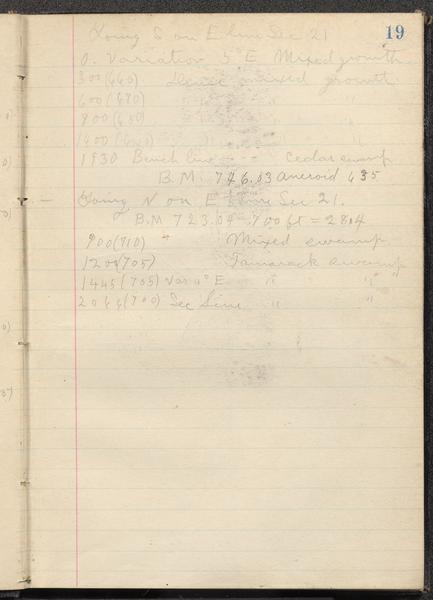 19
Going S on E line Sec 21
0. Variation 5° E Mixed growth
300 (660) Dense mixed growth
600 (680) " "
900 (650) "
1400
1930 Bench line - - cedar swamp
B.M. 746.03 Aneroid 635
Going N on E line Sec 21.
B.M 723.04 700 ft = 28.4
900 (710) Mixed swamp
1200 (705) Tamarack swamp
1445 (705) Var 4° E " " "
(700) Sec Line " "